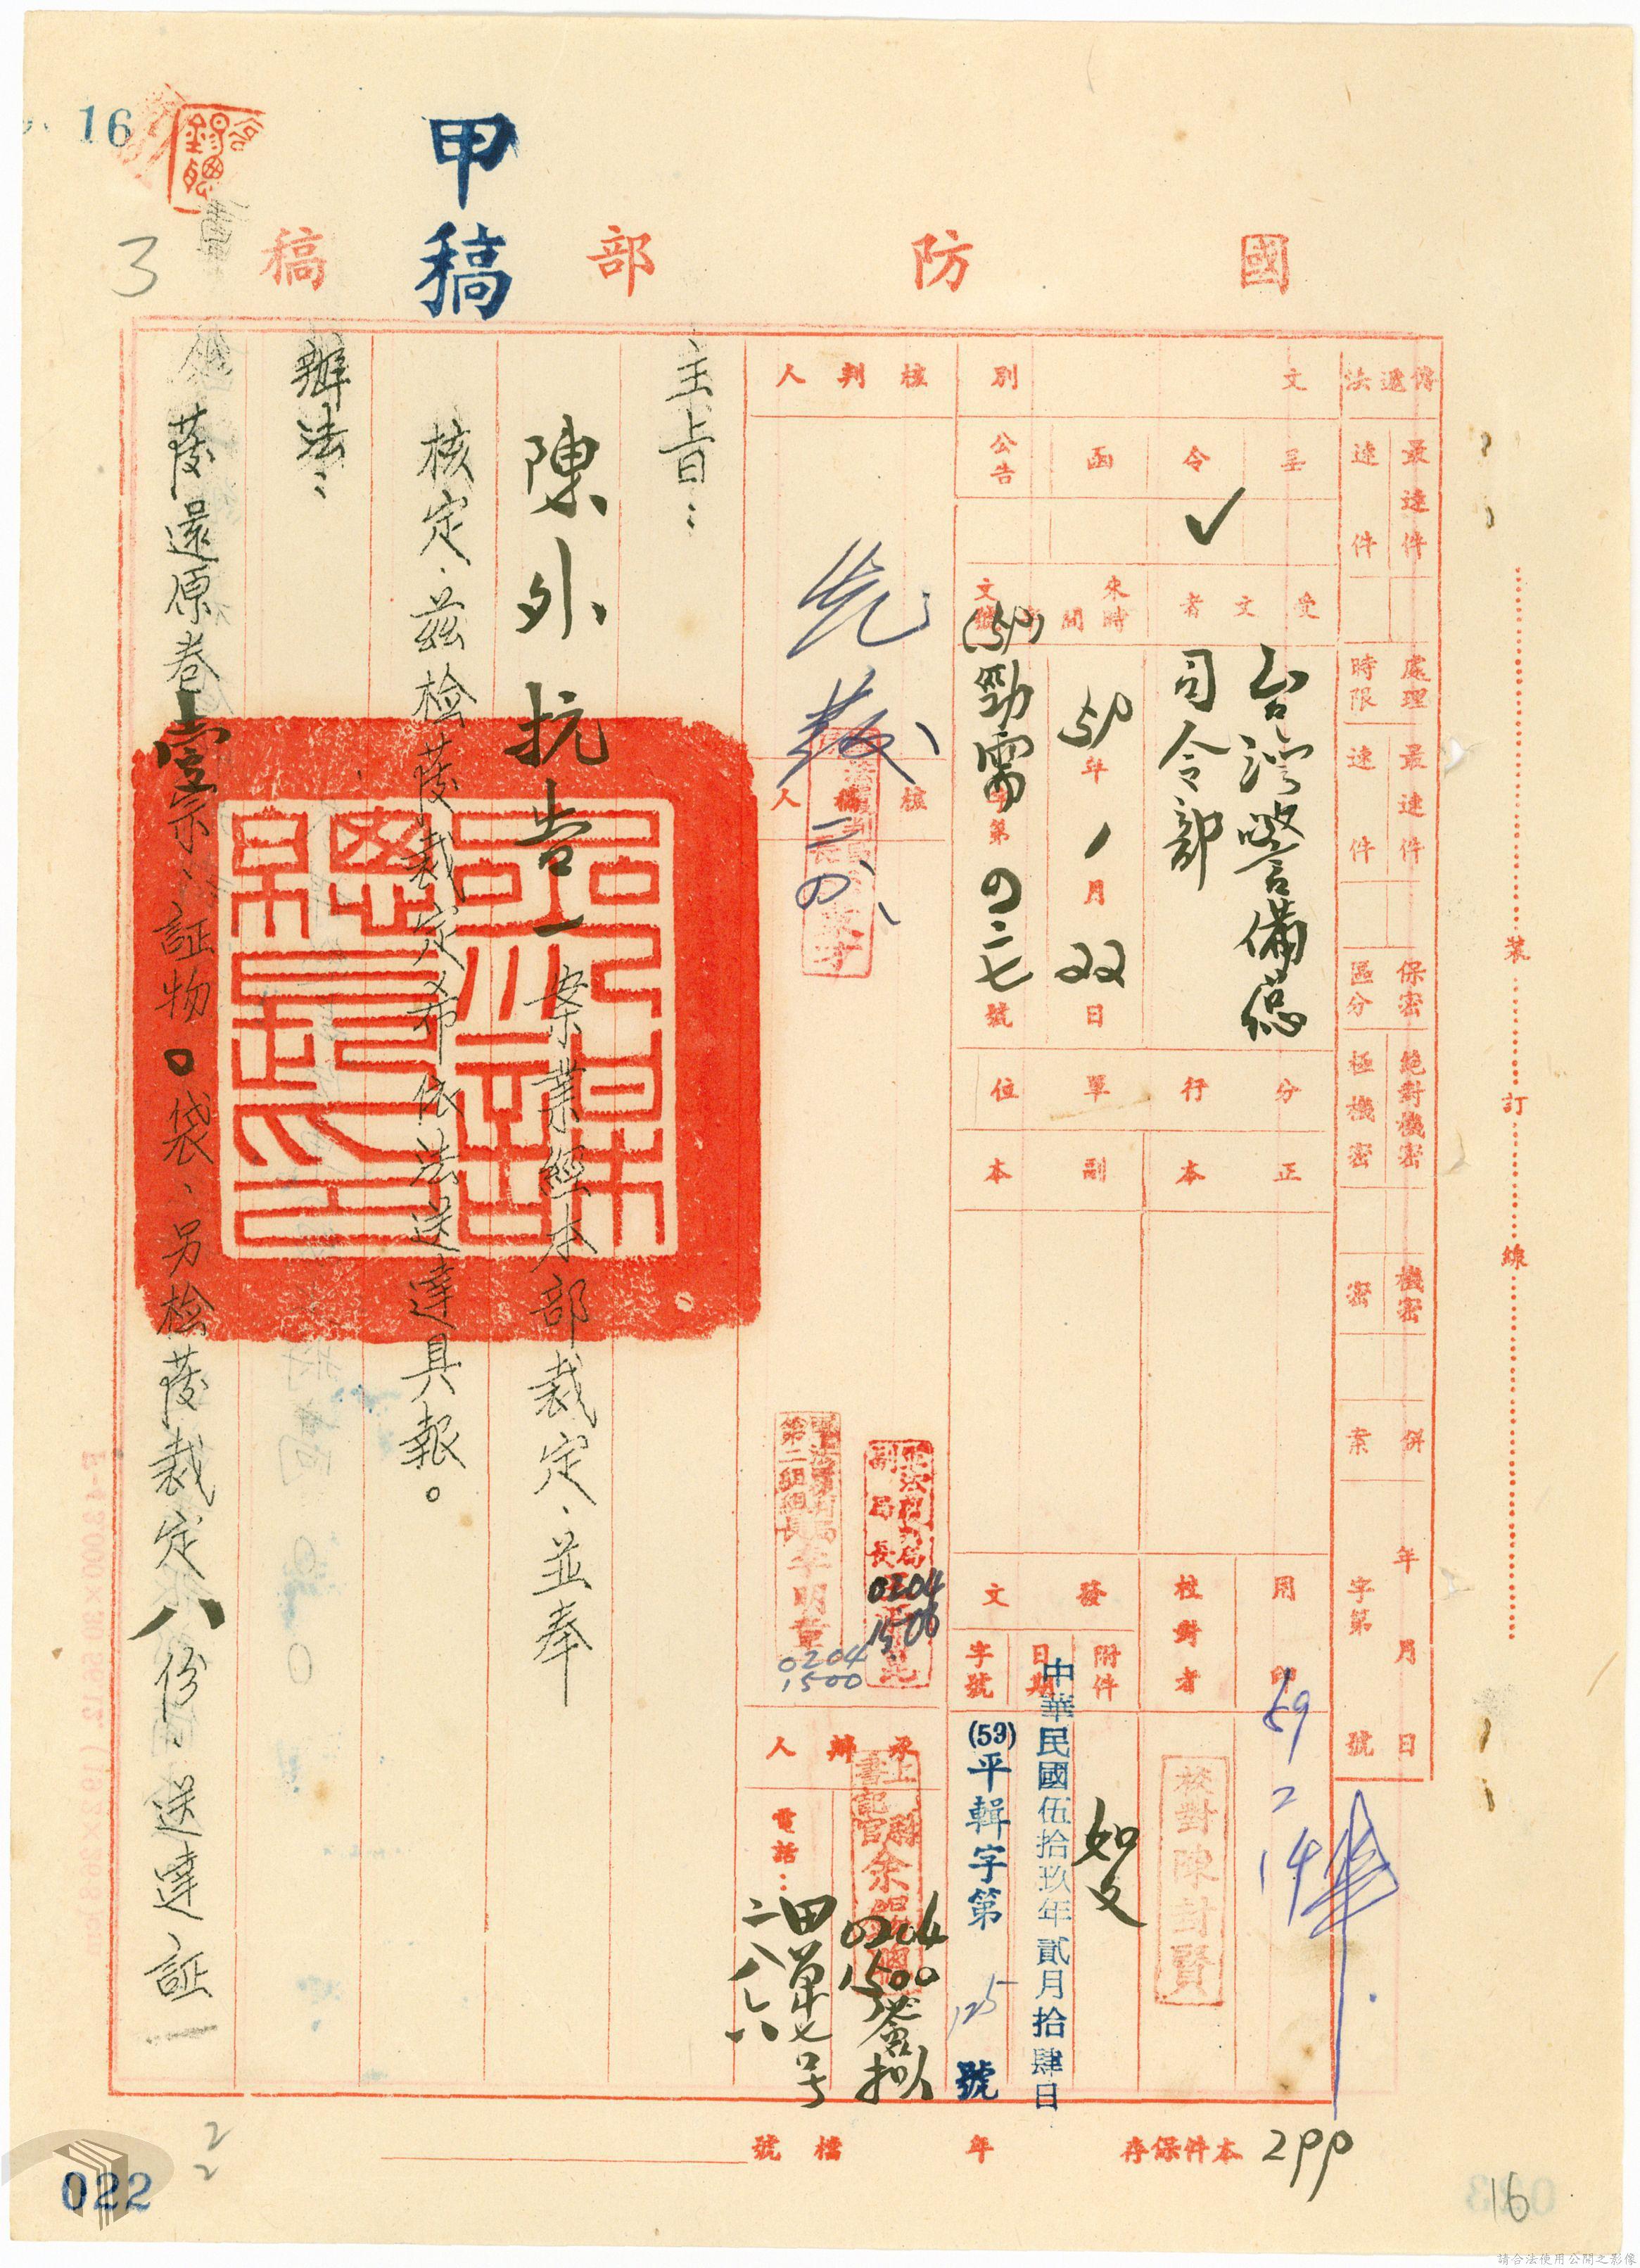 16
甲稿
國防部稿
3
傳遞法
最速件
速件
處理時限
最速件
速件
保密區分
絕對機密
極機密
機密
密
併案
年月日
字第號
文別
呈
令
函
公告
✓
受文者
台灣警備總
司令部
來文
時間
59年1月22日
字號
(59)勁需字第0四二七號
分行單位
正本
副本
用印
59
2
14
校對者
校對陳封賢
發文
附件
如文
日期
中華民國伍拾玖年貳月拾肆日
字號
(59)平輯字第125號
核判人
核稿人
軍法覆判局
副局長
0204
1506
軍法覆判局
第二組組長李明章
0204
1500
承辦人
上尉
書記官余錫聰
0204
1500
擬
電話：
二八七六
主旨：
陳外抗告一案業經本部裁定、並奉
核定、茲檢發裁定希依法送達具報。
辦法：
發還原卷壹宗、証物0袋、另檢發裁定八份、送達証
裝
訂
線
本件保存
年
檔號
2PP
022
2
2
16
請合法使用公開之影像